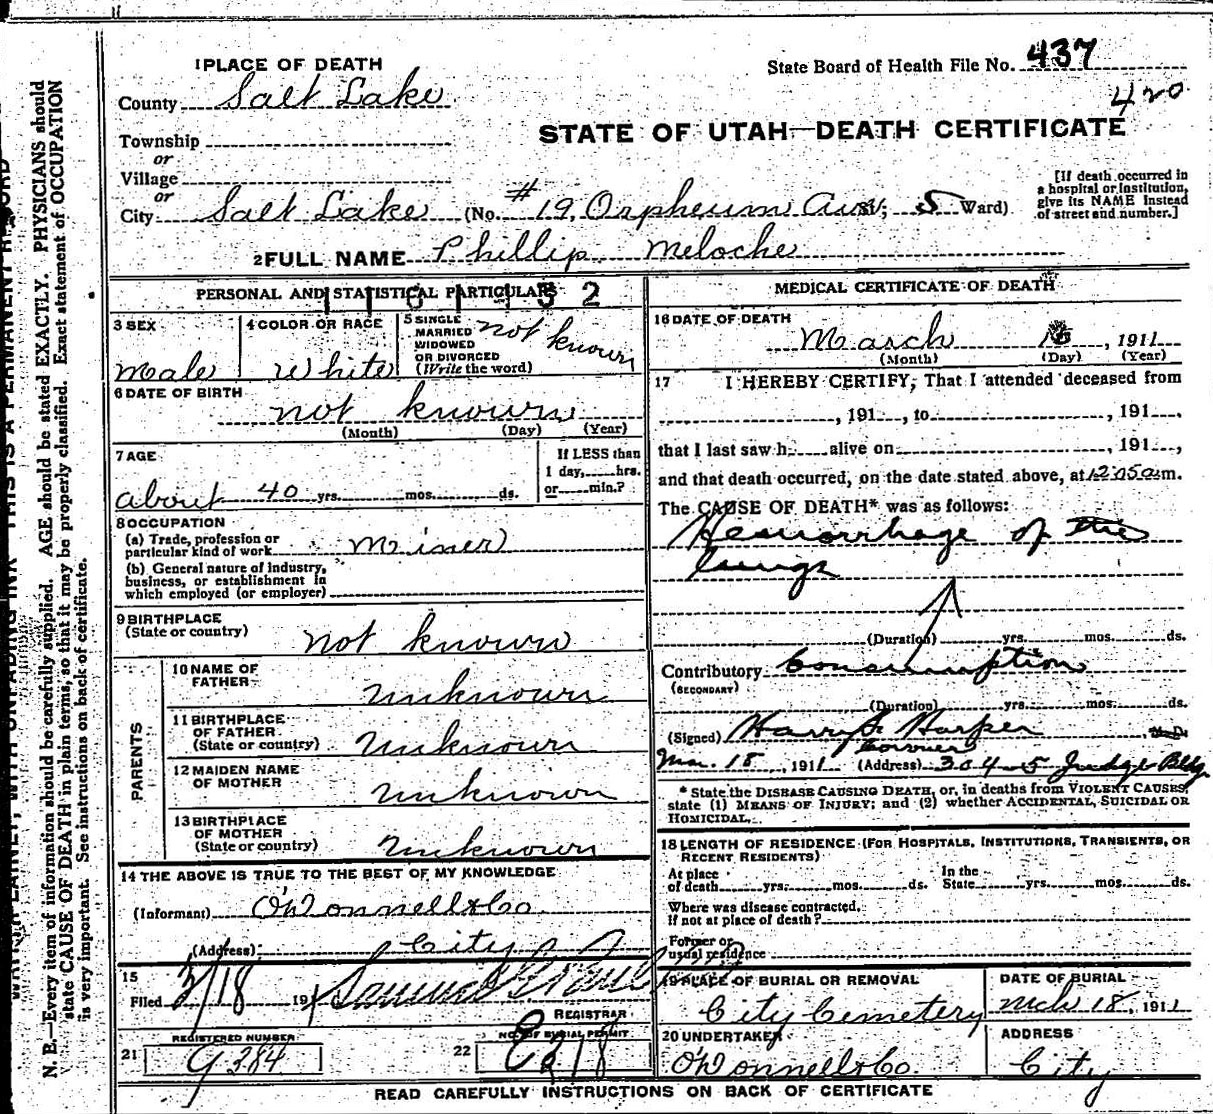 1 PLACE OF DEATH
State Board of Health File No. 437
County Salt Lake
420
Township
or
STATE OF UTAH—DEATH CERTIFICATE
Village
or
City Salt Lake (No. #19, Orpheum Ave St; 5 Ward)
[If death occurred in
a hospital or institution,
give its NAME instead
of street and number.]
2 FULL NAME Phillip Meloche
PERSONAL AND STATISTICAL PARTICULARS
3 SEX
Male
4 COLOR OR RACE
White
5 SINGLE
MARRIED
WIDOWED
OR DIVORCED
(Write the word)
not known
6 DATE OF BIRTH
not known
(Month) (Day) (Year)
7 AGE
about 40 yrs. mos. ds.
If LESS than
1 day, hrs.
or min.?
8 OCCUPATION
(a) Trade, profession or
particular kind of work Miner
(b) General nature of industry,
business, or establishment in
which employed (or employer)
9 BIRTHPLACE
(State or country)
not known
PARENTS
10 NAME OF
FATHER
unknown
11 BIRTHPLACE
OF FATHER
(State or country)
unknown
12 MAIDEN NAME
OF MOTHER
unknown
13 BIRTHPLACE
OF MOTHER
(State or country)
unknown
14 THE ABOVE IS TRUE TO THE BEST OF MY KNOWLEDGE
(Informant) O'Donnell & Co
(Address) City
15
Filed 3/18 191
REGISTRAR
REGISTERED NUMBER
21 G 384
NO. OF BURIAL PERMIT
22
MEDICAL CERTIFICATE OF DEATH
16 DATE OF DEATH
March , 1911
(Month) (Day) (Year)
17 I HEREBY CERTIFY, That I attended deceased from
, 191 , to , 191 ,
that I last saw h alive on , 191 ,
and that death occurred, on the date stated above, at 12 05 a m.
The CAUSE OF DEATH* was as follows:
Hemorrhage of the
lungs
(Duration) yrs. mos. ds.
Contributory Consumption
(SECONDARY)
(Duration) yrs. mos. ds.
(Signed) Harry S. Harper , M. D.
Coroner
Mar. 18 , 1911 (Address) 304-5 Judge Bldg
* State the DISEASE CAUSING DEATH, or, in deaths from VIOLENT CAUSES,
state (1) MEANS OF INJURY; and (2) whether ACCIDENTAL, SUICIDAL OR
HOMICIDAL.
18 LENGTH OF RESIDENCE (FOR HOSPITALS, INSTITUTIONS, TRANSIENTS, OR
RECENT RESIDENTS)
At place
of death yrs. mos. ds.
In the
State yrs. mos. ds.
Where was disease contracted,
If not at place of death?
Former or
usual residence
19 PLACE OF BURIAL OR REMOVAL
City Cemetery
DATE OF BURIAL
Mch 18, 1911
20 UNDERTAKER
O'Donnell & Co.
ADDRESS
City
READ CAREFULLY INSTRUCTIONS ON BACK OF CERTIFICATE
N. B.—Every item of information should be carefully supplied. AGE should be stated EXACTLY. PHYSICIANS should
state CAUSE OF DEATH in plain terms, so that it may be properly classified. Exact statement of OCCUPATION
is very important. See instructions on back of certificate.